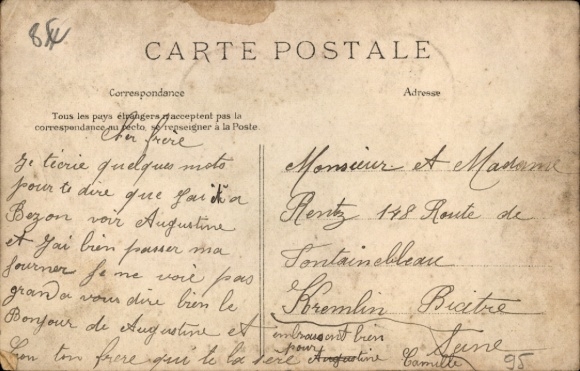 84
CARTE POSTALE
Correspondance
Adresse
Tous les pays étrangers n'acceptent pas la
correspondance au recto, se renseigner à la Poste
Cher frère
Je técrie quelques mots
pour te dire que Jai été a
Bezon voir Augustine
et Jai bien passer ma
Journer Je ne voie pas
grand a vous dire bien le
Bonjour de Augustine et
ton frère qui te la sere
embrassant bien
pour Augustine
Camille
Monsieur et Madame
Rentz 148 Route de
Fontainebleau
Kremlin Bicètre
Seine
95